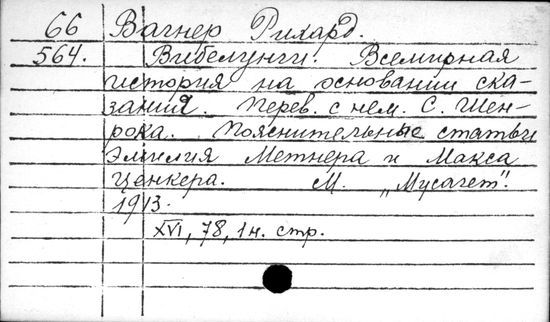 66 Вагнер Рихард.
564. Вибелунги. Всемирная
история на основании ска-
заний. Перев. с нем. С. Шен-
рока. Пояснительные статьи
Эмилия Метнера и Макса
Ценкера. М. „Мусагет".
1913.
XVI, 78, 1 н. стр.